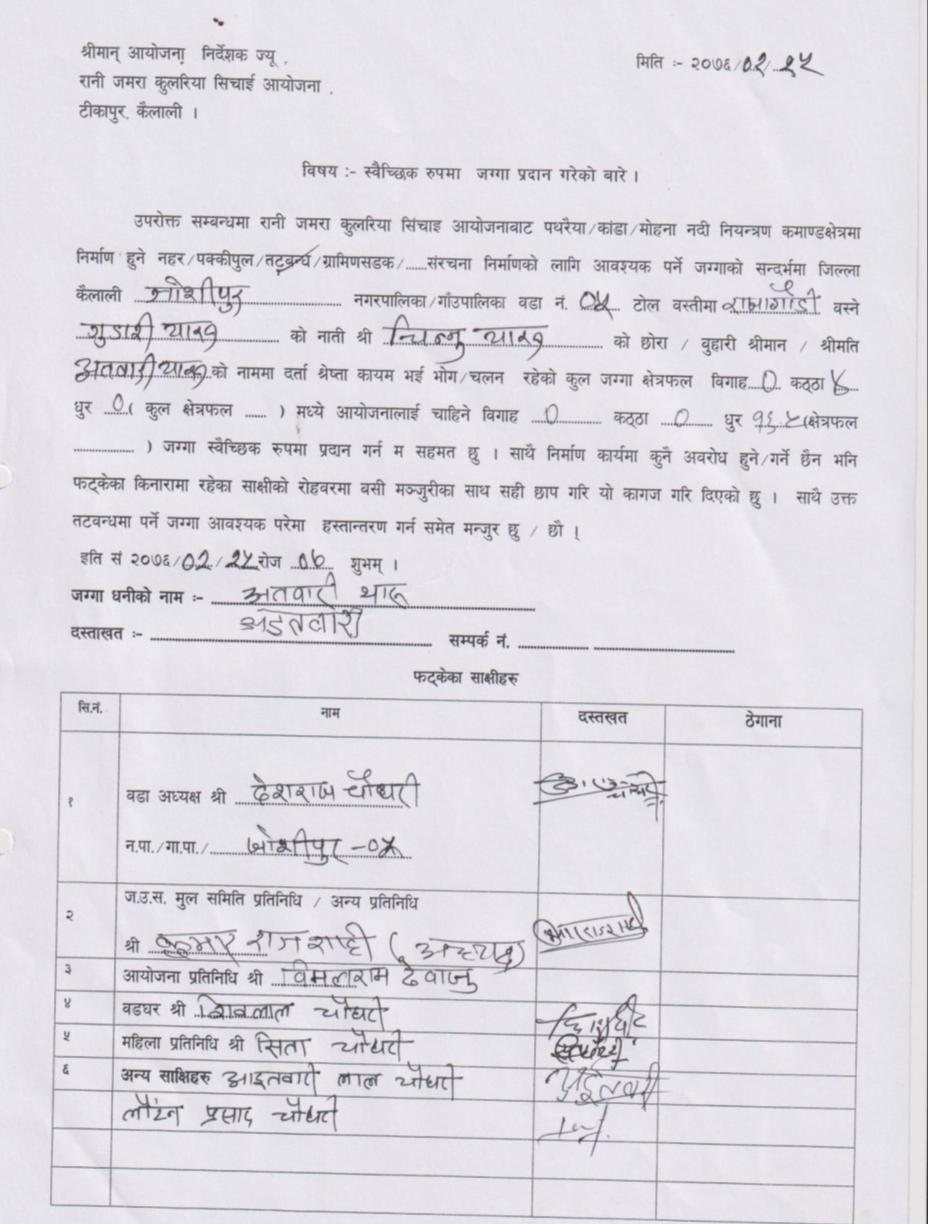 श्रीमान् आयोजना निर्देशक ज्यू ,
मिति :- २०७६/02/२५
रानी जमरा कुलरिया सिचाई आयोजना ,
टीकापुर, कैलाली ।
विषय :- स्वैच्छिक रुपमा जग्गा प्रदान गरेको बारे ।
उपरोक्त सम्बन्धमा रानी जमरा कुलरिया सिंचाइ आयोजनाबाट पथरैया/कांडा/मोहना नदी नियन्त्रण कमाण्डक्षेत्रमा
निर्माण हुने नहर/पक्कीपुल/तट्बन्ध/ग्रामिणसडक/......संरचना निर्माणको लागि आवश्यक पर्ने जग्गाको सन्दर्भमा जिल्ला
कैलाली जोशीपुर नगरपालिका/गाँउपालिका वडा नं. 0५ टोल वस्तीमा वस्ने
को नाती श्री चिन्नु थारु को छोरा / बुहारी श्रीमान / श्रीमति
अतवारी थारु को नाममा दर्ता श्रेष्ता कायम भई भोग/चलन रहेको कुल जग्गा क्षेत्रफल विगाह 0 कठ्ठा ४
धुर 0 ( कुल क्षेत्रफल ...... ) मध्ये आयोजनालाई चाहिने विगाह 0 कठ्ठा 0 धुर १६.५ (क्षेत्रफल
................ ) जग्गा स्वैच्छिक रुपमा प्रदान गर्न म सहमत छु । साथै निर्माण कार्यमा कुनै अवरोध हुने/गर्ने छैन भनि
फट्केका किनारामा रहेका साक्षीको रोहवरमा बसी मञ्जुरीका साथ सही छाप गरि यो कागज गरि दिएको छु । साथै उक्त
तटबन्धमा पर्ने जग्गा आवश्यक परेमा हस्तान्तरण गर्न समेत मन्जुर छु / छौ ।
इति सं २०७६/02/२५ रोज 0६ शुभम् ।
जग्गा धनीको नाम :- अतवारी थारू
दस्ताखत :- अइतवारी सम्पर्क नं.
फट्केका साक्षीहरु
सि.नं. नाम दस्तखत ठेगाना
१ वडा अध्यक्ष श्री देशराज चौधरी
न.पा./गा.पा./ जोशीपुर -0५
२ ज.उ.स. मुल समिति प्रतिनिधि / अन्य प्रतिनिधि
श्री कुमार राज शाही (अध्यक्ष)
३ आयोजना प्रतिनिधि श्री विमलराम देवाजु
४ वडघर श्री शिवलाल चौधरी
५ महिला प्रतिनिधि श्री सिता चौधरी
६ अन्य साक्षिहरु आइतवारी लाल चौधरी
लौटन प्रसाद चौधरी